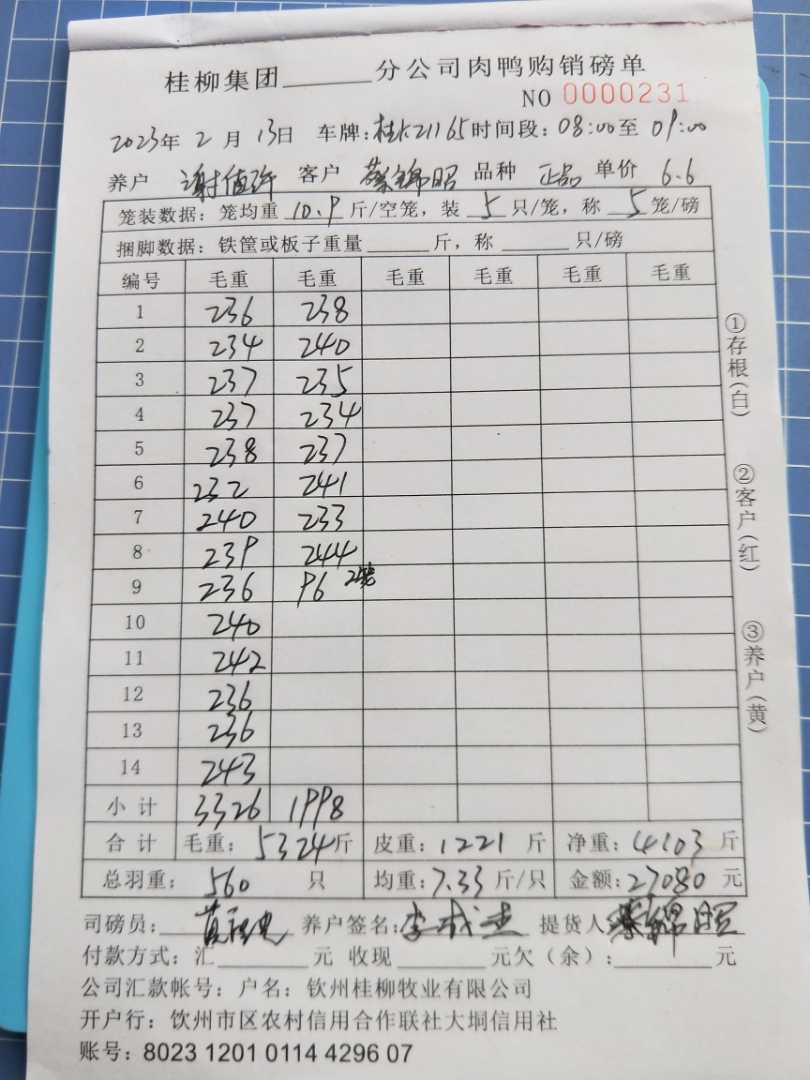 桂柳集团______分公司肉鸭购销磅单
NO 0000231
2023年 2 月 13日 车牌：桂K21165 时间段：08:00至 09:00
养户 谢值许 客户 蔡锦昭 品种 正品 单价 6.6
笼装数据：笼均重 10.9 斤/空笼，装 5 只/笼，称 5 笼/磅
捆脚数据：铁筐或板子重量______斤，称______只/磅
编号 毛重 毛重 毛重 毛重 毛重 毛重
1 236 238
2 234 240
3 237 235
4 237 234
5 238 237
6 232 241
7 240 233
8 239 244
9 236 96 2笼
10 240
11 242
12 236
13 236
14 243
小 计 3326 1998
合 计 毛重：5324斤 皮重：1221 斤 净重：4103 斤
总羽重：560 只 均重：7.33 斤/只 金额：27080 元
司磅员： 养户签名：李成杰 提货人 蔡锦昭
付款方式：汇______元 收现______元欠（余）：______元
公司汇款帐号：户名：钦州桂柳牧业有限公司
开户行：钦州市区农村信用合作联社大垌信用社
账号：8023 1201 0114 4296 07
①存根（白）
②客户（红）
③养户（黄）